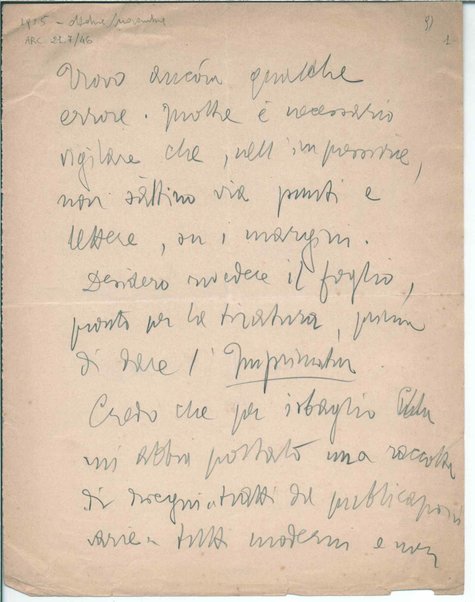 1915 - ottobre/novembre
ARC. 21.7/46
9)
1
Trovo ancóra qualche
errore. Inoltre è necessario
vigilare che, nell'impressione,
non sàltino via punti e
lettere, su i margini.
Desidero rivedere il foglio,
pronto per la tiratura, prima
di dare l'Imprimatur
Credo che per isbaglio
mi abbia portato una raccolta
di disegni tratti da pubblicazioni
varie - tutti moderni e non